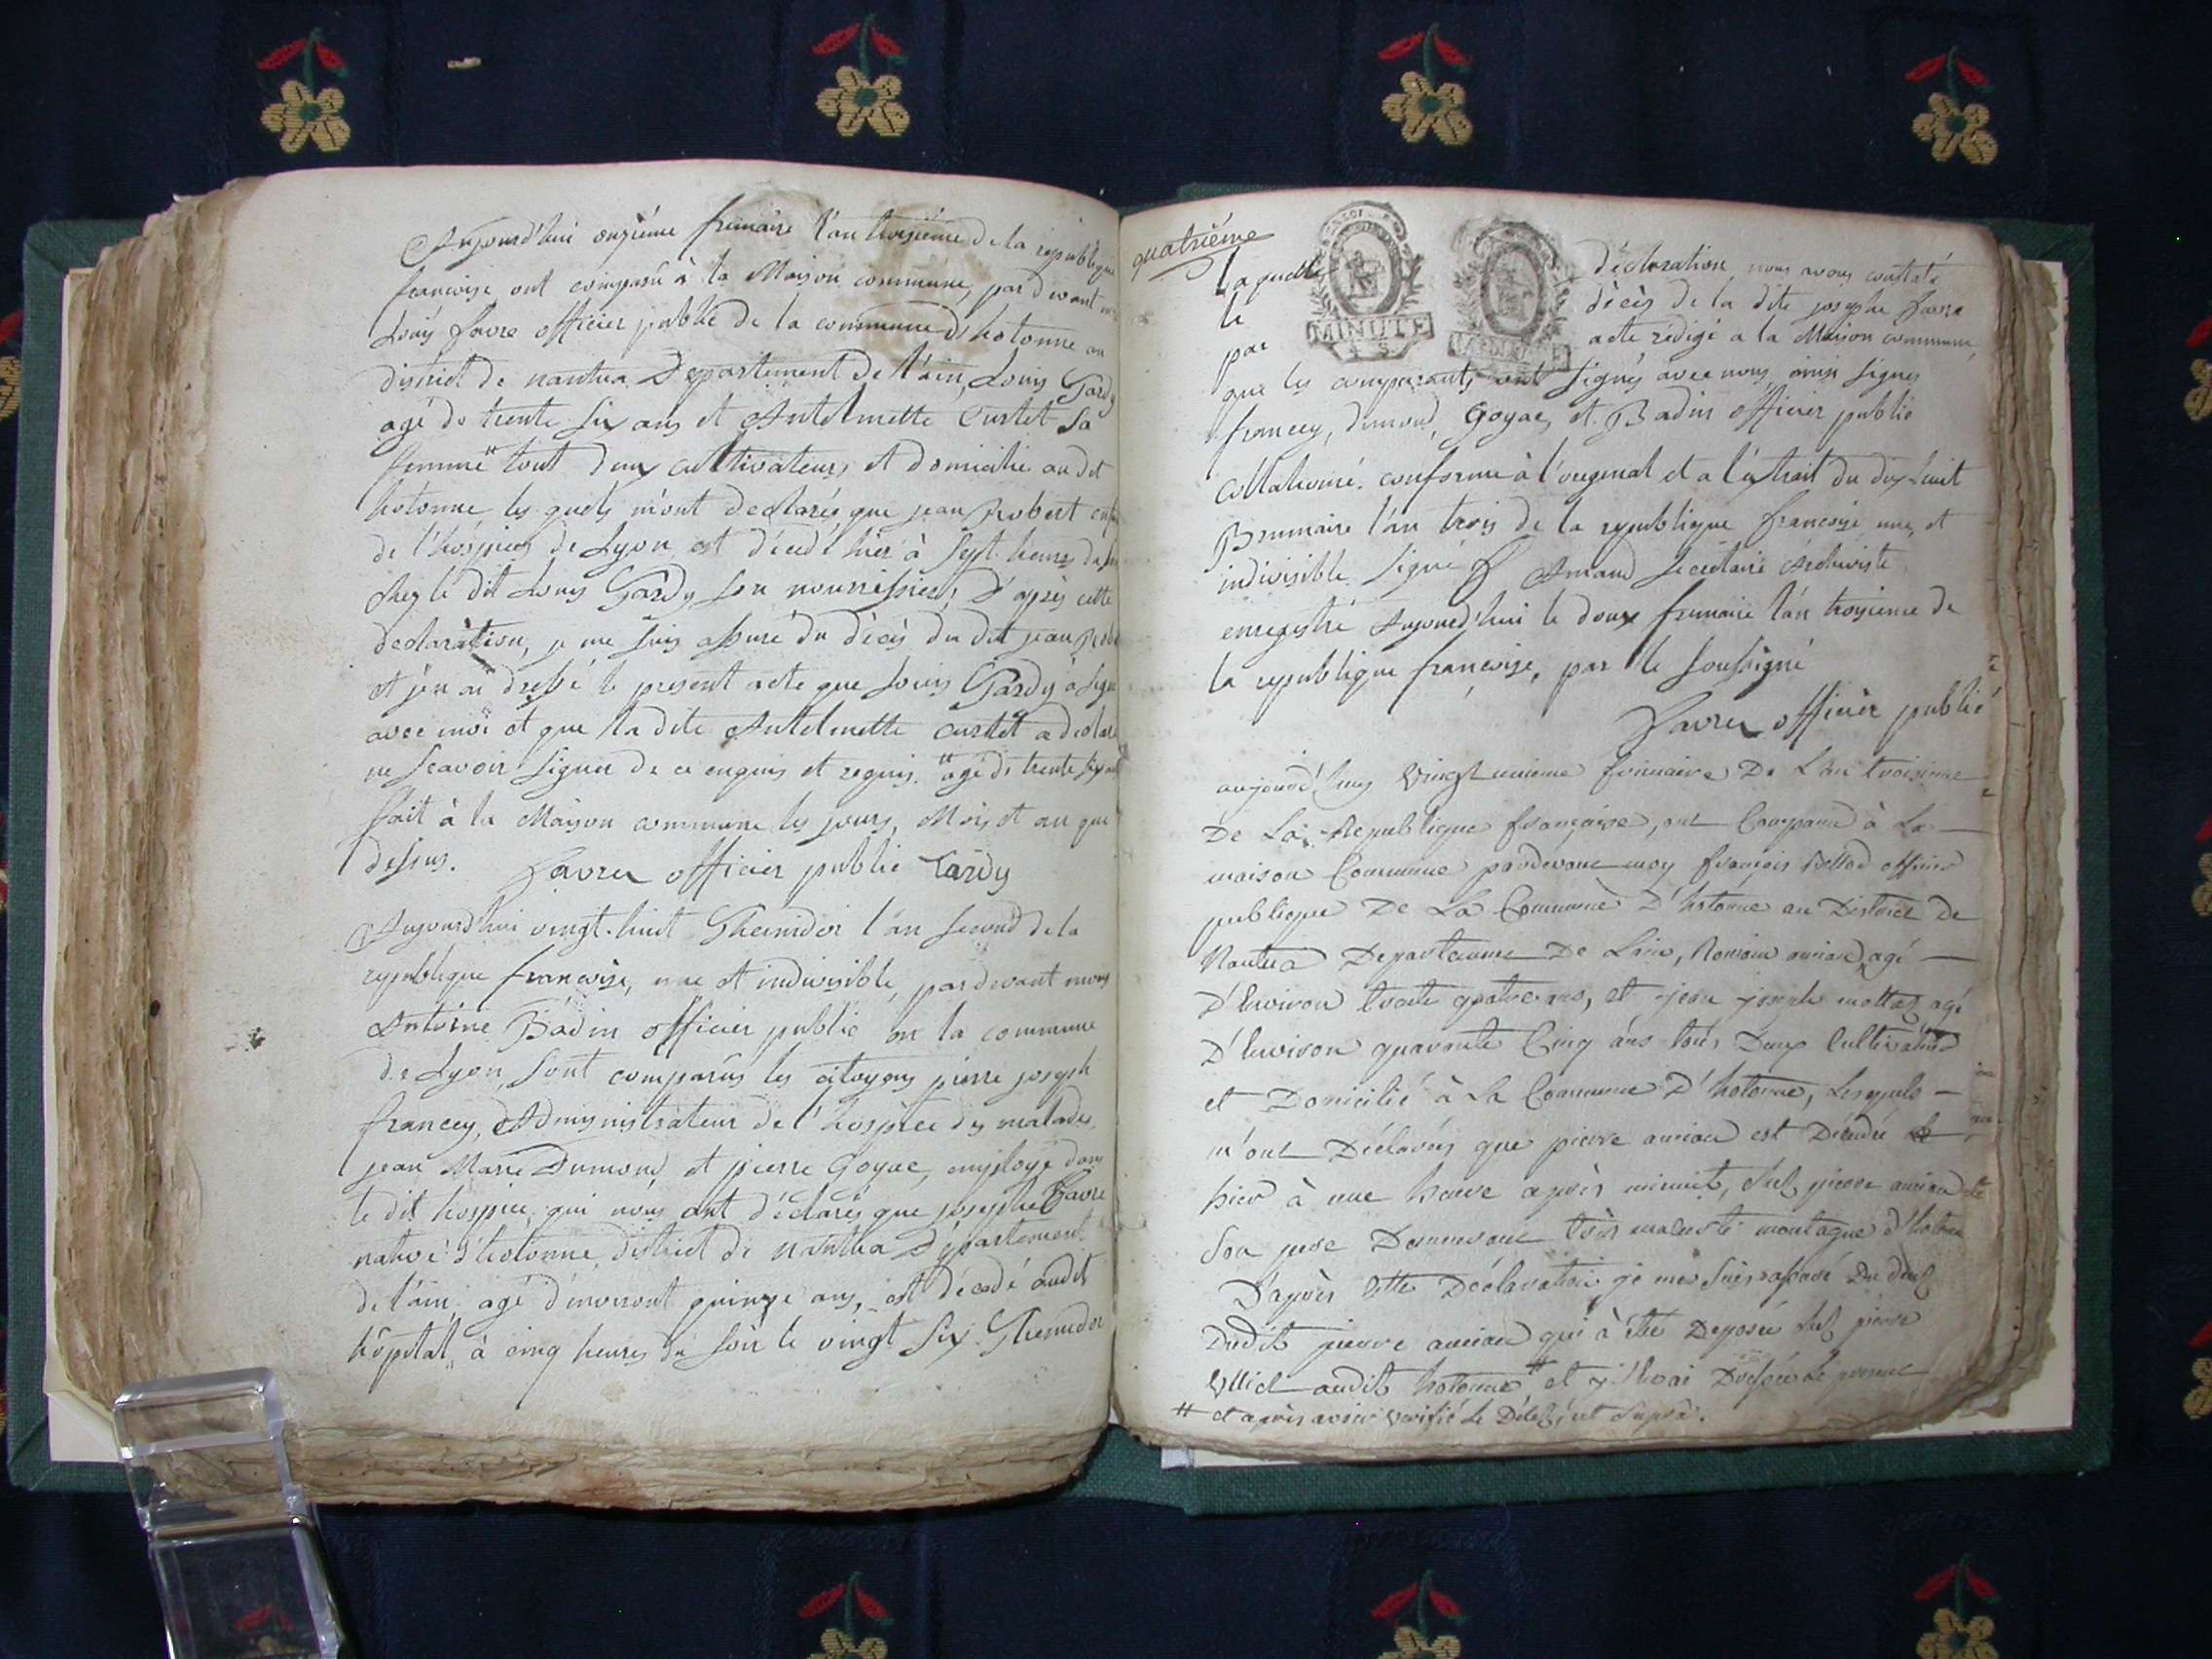 Aujourd'hui onzième frimaire l'an troisième de la république
francoise ont comparu à la Maison commune, par devant
Louis favre officier public de la commune d'hotonne au
district de nantua Departement de l'ain, Louis Gardy
agé de trente six ans et Antelmette Curtet Sa
femme # tout deux cultivateurs et domicilie au dit
hotonne les quels m'ont declarés que jean Robert
de l'hospice de Lyon est décédé hier à sept heures du
chez le dit Louis Gardy son nourrissier, D'après cette
declaration, je me suis assuré du décès du dit jean
et j'en ai dressé le present acte que Louis Gardy à
avec moi et que la dite Antelmette curtet a
ne scavoir signer de ce enquis et requis. # agé de trente six
fait à la Maison commune les jours, Mois et an que
dessus. favre officier public Gardy
Aujourd'hui vingt-huit Thermidor l'an second de la
republique francoise, une et indivisible, pardevant nous
Antoine Badin officier public en la commune
de Lyon, sont comparus les citoyens pierre joseph
francey, Administrateur de l'hospice des malades,
jean Marie Dumond, et pierre Goyac, employé dans
le dit hospice, qui nous ont déclarés que josephe favre
native d'hotonne, district de nantua Département
de l'ain agé d'environt quinze ans, est décédé audit
hôpital, à cinq heures du soir le vingt six Thermidor
quatriéme
MINUTE
laquelle déclaration nous avons constaté
le décès de la dite josephe favre
par acte rédigé a la Maison commune,
que les comparants ont signés avec nous signés
francey, dumond, Goyac, et Badin officier public
collationné. conforme à l'original et a l'extrait du dix huit
Brumaire l'an trois de la republique francoise une, et
indivisible signé Amand secretaire Archiviste
enregistré Aujourd'hui le doux frimaire l'an troisieme de
la republique françoise, par le soussigné
favre officier public
aujourd'huy Vingt unieme frimaire De L'an troisieme
De La Republique française, ont Comparu à La
maison Commune pardevant moy françois officier
publique De La Commune D'hotonne au District de
Nantua Departement De Lain, agé
D'Environ trente quatre ans, et jean joseph mottaz agé
D'Environ quarante Cinq ans tous Deux Cultivateur
et Domicilié à La Commune D'hotonne, Lesquels
m'ont Déclarés que pierre est Décédée
hier à une heure après minuit, chez pierre
Son pere Demeurant montagne d'hotonne
D'après Cette Déclaration je me suis assuré Du
Dudit pierre qui à été Deposée chez pierre
audit hotonne # et Dressée Le present
# et après avoir verifié Le